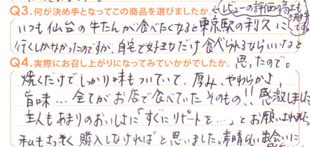 Q3.何が決め手となってこの商品を選びましたか。
レビューの評価の高さ
いつも仙台の牛たんが食べたくなると東京駅の利久に
行くしかなかったのですが、自宅で好きなだけ食べられるならいいなと
思ったので。
Q4.実際にお召し上がりになってみていかがでしたか。
焼くだけでしっかり味もついていて、厚み、やわらかさ、
旨味…全てがお店で食べていたそのもの!!感激しました
主人もあまりのおいしさに「すぐにリピートを…」とお願いされた
私もさっそく購入しなければと思いました。素晴らしい出会いに